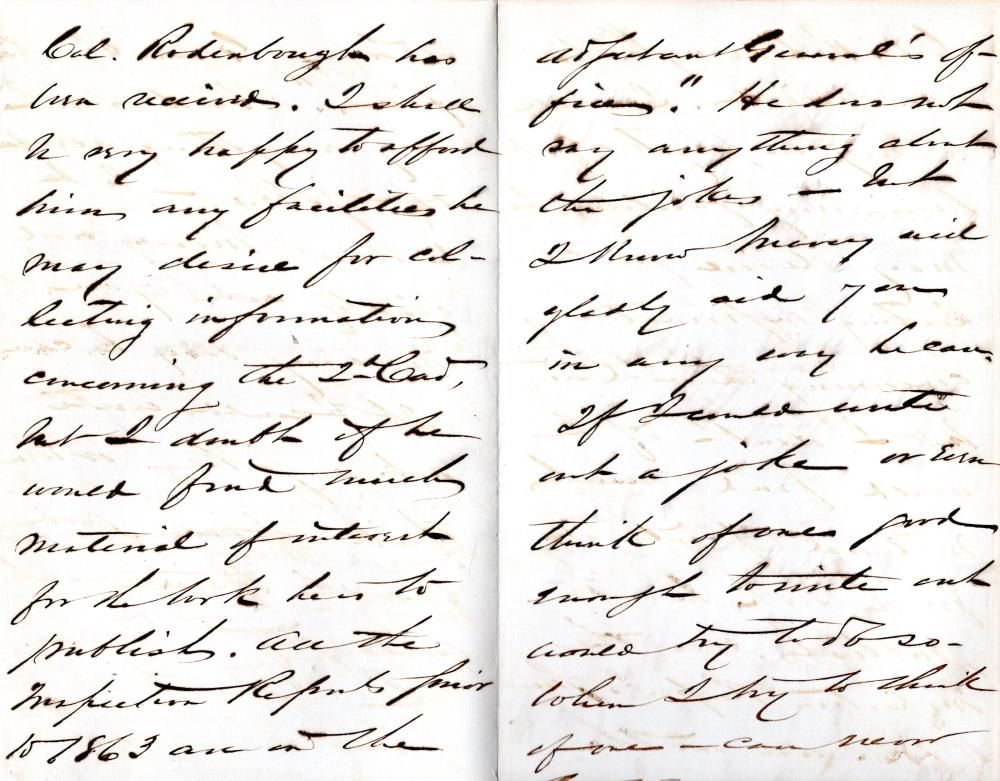 Col. Rodenbough has
been received. I shall
be very happy to afford
him any facilities he
may desire for col-
lecting information
concerning the 2d Cav,
but I doubt if he
would find much
material of interest
for the work he is to
publish. All the
Inspection Reports prior
to 1863 are in the
Adjutant General's of-
fice." He does not
say anything about
the jokes – but
I know Marcy will
gladly aid you
in any way he can.
If I could write
out a joke or even
think of one good
enough to write out
would try to do so –
When I try to think
of one – can never